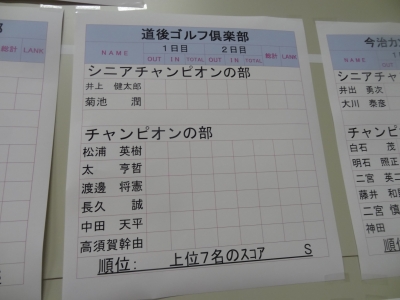 道後ゴルフ倶楽部
NAME 1日目 2日目 総計 LANK
OUT IN TOTAL OUT IN TOTAL
シニアチャンピオンの部
井上 健太郎
菊池 潤
チャンピオンの部
松浦 英樹
太 亨哲
渡邊 将憲
長久 誠
中田 天平
高須賀幹由
順位: 上位7名のスコア S
部
総計 LANK
今治カ
NAME
シニアチャ
井出 勇次
大川 泰彦
チャンピ
白石 茂
明石 照正
二宮 英二
藤井 和
二宮 慎
神田
順位